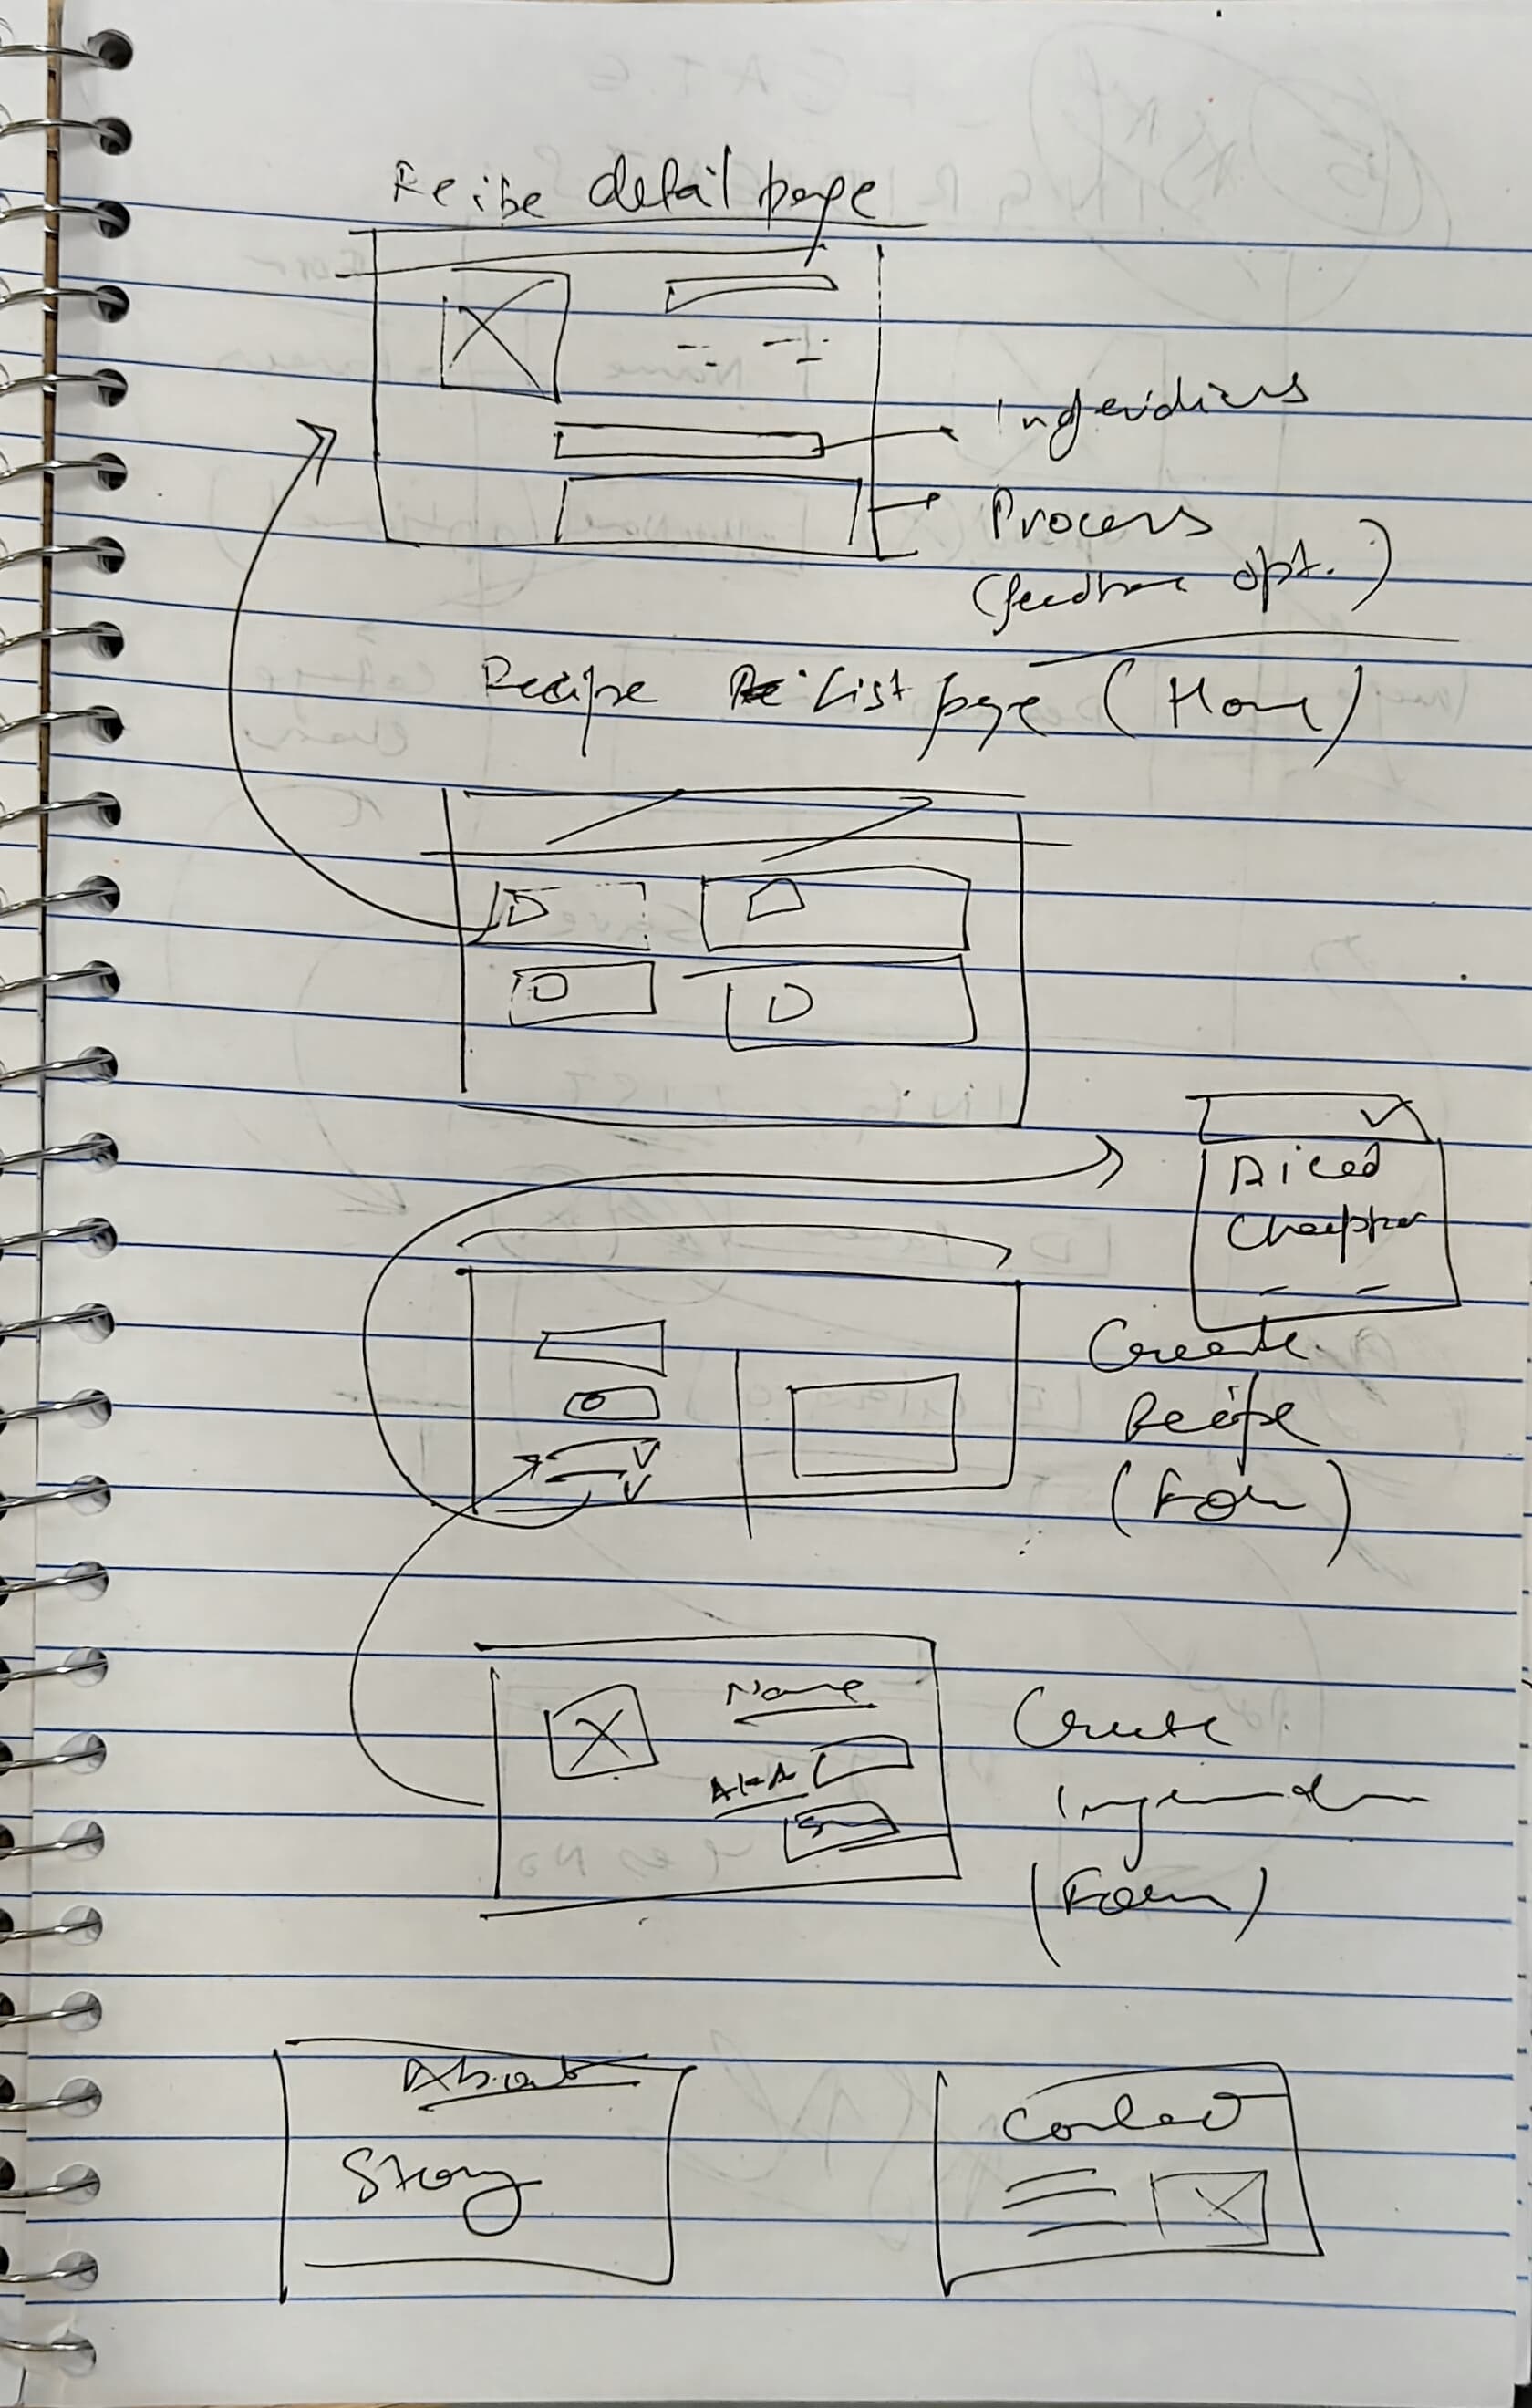 Recibe detail page
Ingridians
Process
(feedback opt.)
Recipe Re List page (Home)
Diced
Create
Recipe
(Form)
Name
AKA
Create
(Form)
About
Story
Contact